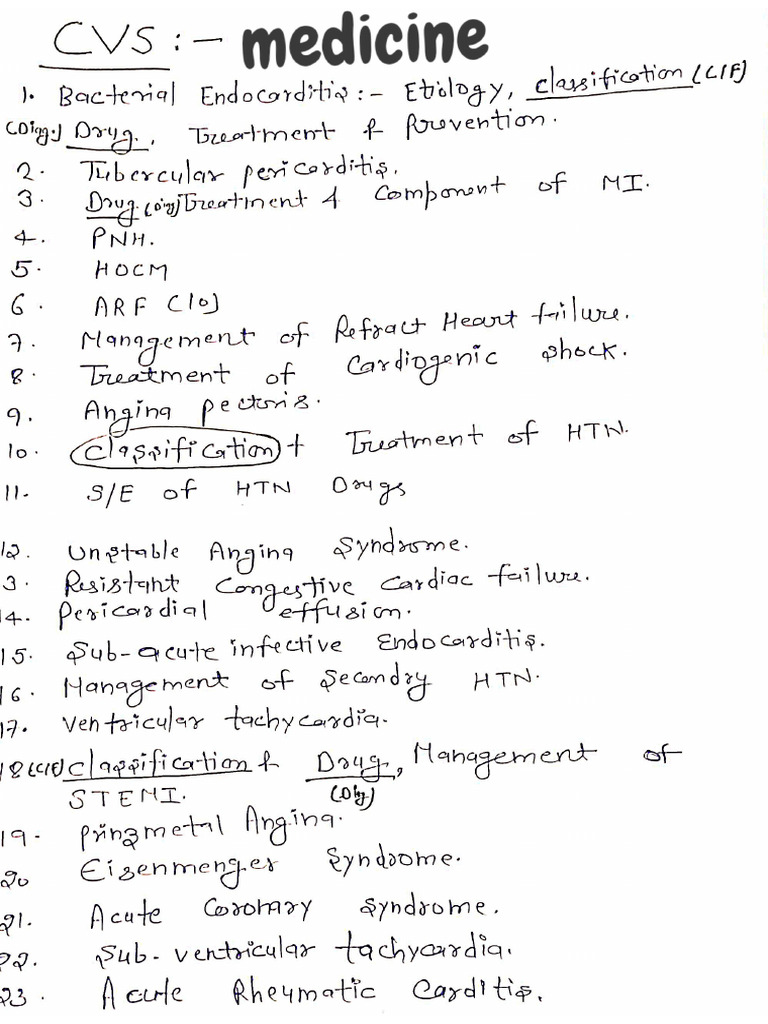 CVS :- medicine
1. Bacterial Endocarditis :- Etiology, classification (C/F)
(Diag.) Drug, Treatment & Prevention.
2. Tubercular pericarditis.
3. Drug (Diag) Treatment & Component of MI.
4. PNH.
5. HOCM
6. ARF
7. Management of Refract Heart failure.
8. Treatment of Cardiogenic shock.
9. Angina pectoris.
10. Classification + Treatment of HTN.
11. S/E of HTN Drugs
12. Unstable Angina Syndrome.
3. Resistant Congestive Cardiac failure.
14. Pericardial effusion.
15. Sub-acute infective Endocarditis.
16. Management of Secondry HTN.
17. Ventricular tachycardia.
18 (C/F) Classification & Drug, Management of
STEMI. (Diag)
19. Prinzmetal Angina.
20 Eisenmenger Syndrome.
21. Acute Coronary Syndrome.
22. Sub-ventricular tachycardia.
23. Acute Rheumatic Carditis.